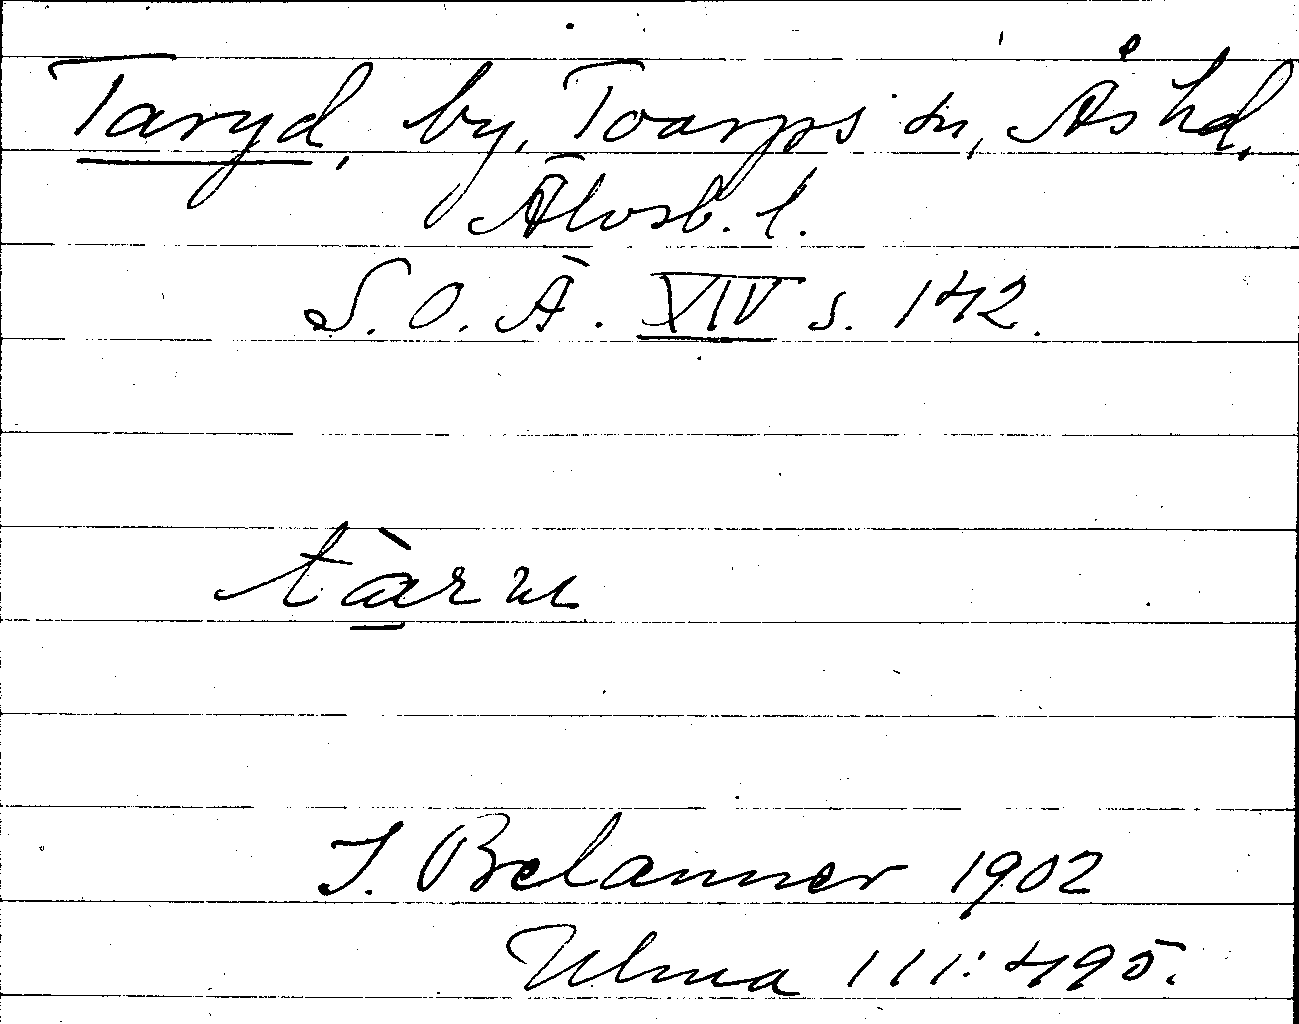 Taryd, by, Toarps sn, Ås hd,
Älvsb. l.
S. O. Ä. XIV s. 142.
tàru
J. Belanner 1902
Ulma 111:495.